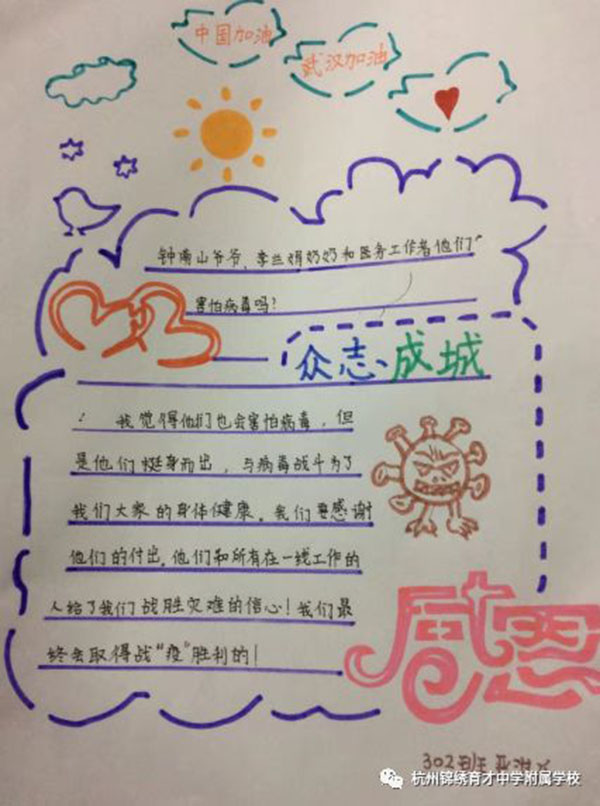 中国加油
武汉加油
钟南山爷爷、李兰娟奶奶和医务工作者他们
害怕病毒吗?
众志成城
我觉得他们也会害怕病毒,但
是他们挺身而出,与病毒战斗为了
我们大家的身体健康。我们要感谢
他们的付出。他们和所有在一线工作的
人给了我们战胜灾难的信心!我们最
终会取得战“疫”胜利的!
感恩
302班
杭州锦绣育才中学附属学校